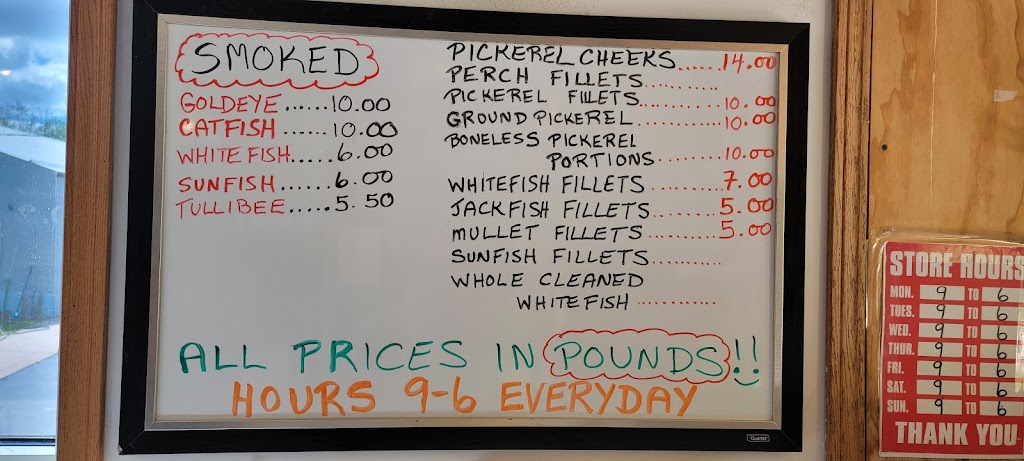 SMOKED
GOLDEYE......10.00
CATFISH ......10.00
WHITE FISH.....6.00
SUNFISH......6.00
TULLIBEE.....5.50
PICKEREL CHEEKS......14.00
PERCH FILLETS..........
PICKEREL FILLETS..........10.00
GROUND PICKEREL..........10.00
BONELESS PICKEREL
PORTIONS.........10.00
WHITEFISH FILLETS..........7.00
JACKFISH FILLETS..........5.00
MULLET FILLETS..........5.00
SUNFISH FILLETS..........
WHOLE CLEANED
WHITEFISH...........
ALL PRICES IN POUNDS!!
HOURS 9-6 EVERYDAY
Quartet
STORE HOURS
MON. 9 TO 6
TUES. 9 TO 6
WED. 9 TO 6
THUR. 9 TO 6
FRI. 9 TO 6
SAT. 9 TO 6
SUN. 9 TO 6
THANK YOU